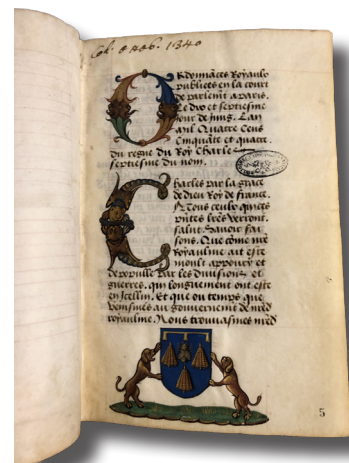 Ordonnāces Royaulx
publiees en la court
de parlemt a paris.
Le dixseptiesme
jour de juing. Lan
mil Quatre Cens
Cinquāte et quatre.
du regne du Roy Charles
septiesme du nom.
Charles par la grace
de dieu Roy de france.
A Tous ceulx qui ces
pn̄tes lrēs verront.
salut. Savoir fai
sons. Que cōme nr̄e
Royaulme ait este
moult appovry et
depopulle par les divisions et
guerres. qui longuement ont este
en Icellui. Et que ou temps que
venismes au gouvernement de nr̄ed
royaulme. Nous trouvasmes nr̄ed
5